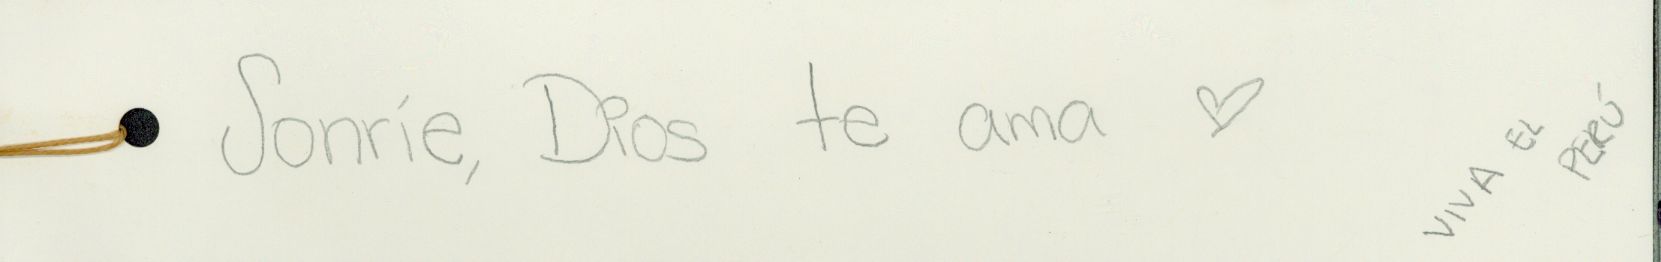 Sonríe, Dios te ama ♡
VIVA EL PERÚ